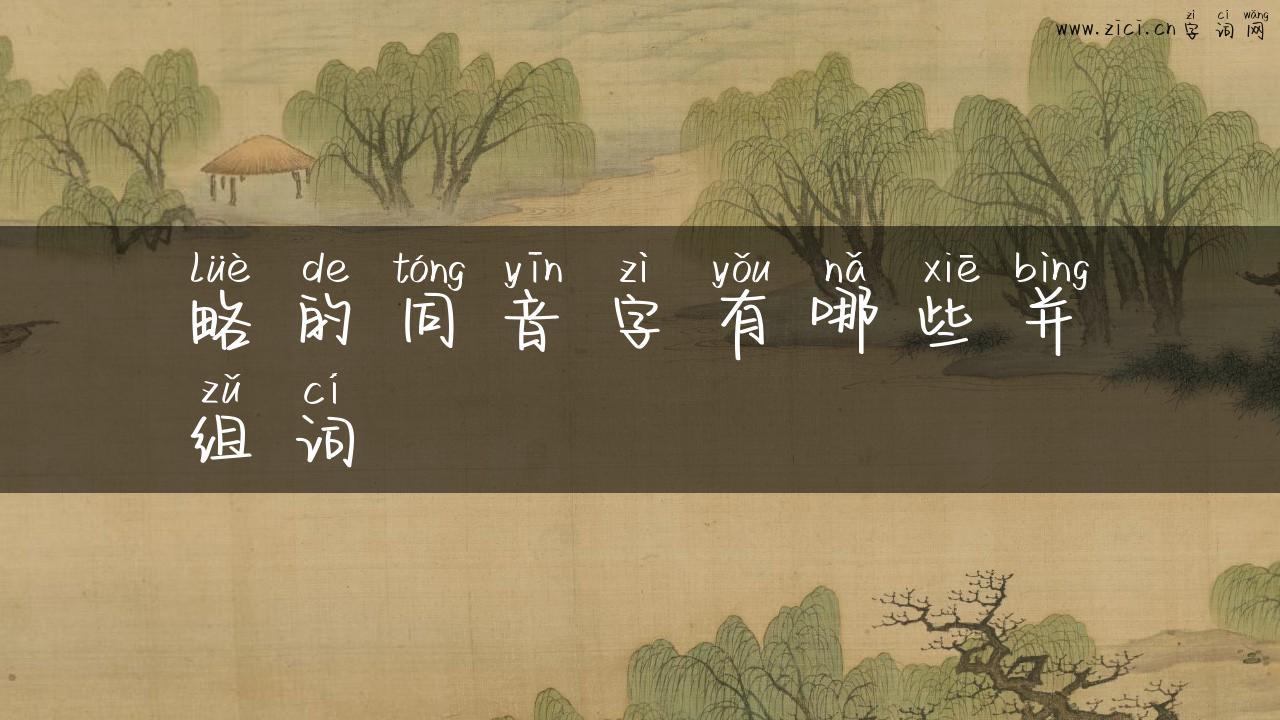 zì cí wǎng
www.zici.cn 字 词 网
lüè de tóng yīn zì yǒu nǎ xiē bìng
略 的 同 音 字 有 哪 些 并
zǔ cí
组 词